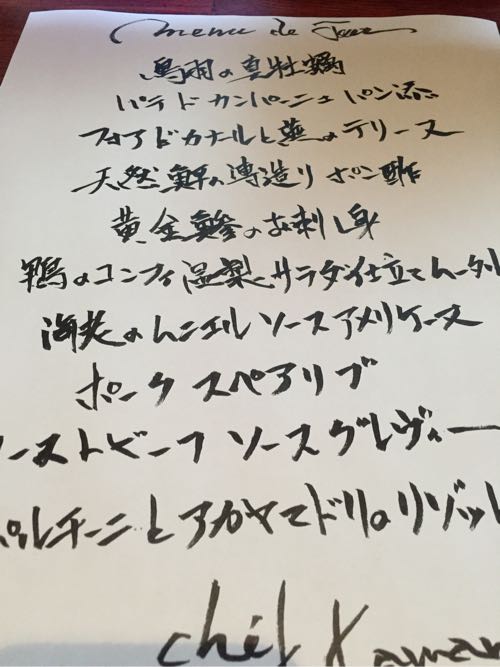 menu de Jour
鳥羽の真牡蠣
パテ ド カンパーニュ パン添
フォアドカナールと蕪のテリーヌ
天然鮃の薄造り ポン酢
黄金鯵のお刺し身
鴨のコンフィ 温製サラダ仕立て ムータル
海老のムニエル ソースアメリケーヌ
ポーク スペアリブ
ーストビーフ ソースグレヴィー
ポルチーニとアカヤマドリのリゾット
chef